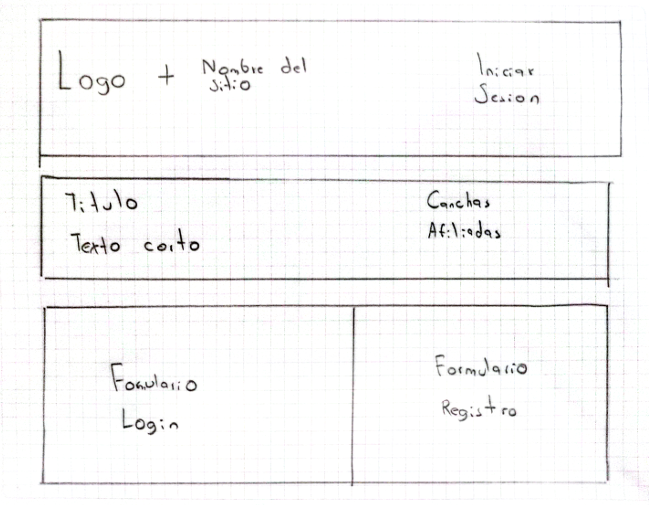 Logo + Nombre del
sitio
Iniciar
Sesion
Titulo
Texto corto
Canchas
Afiliadas
Fomulario
Login
Formulario
Registro